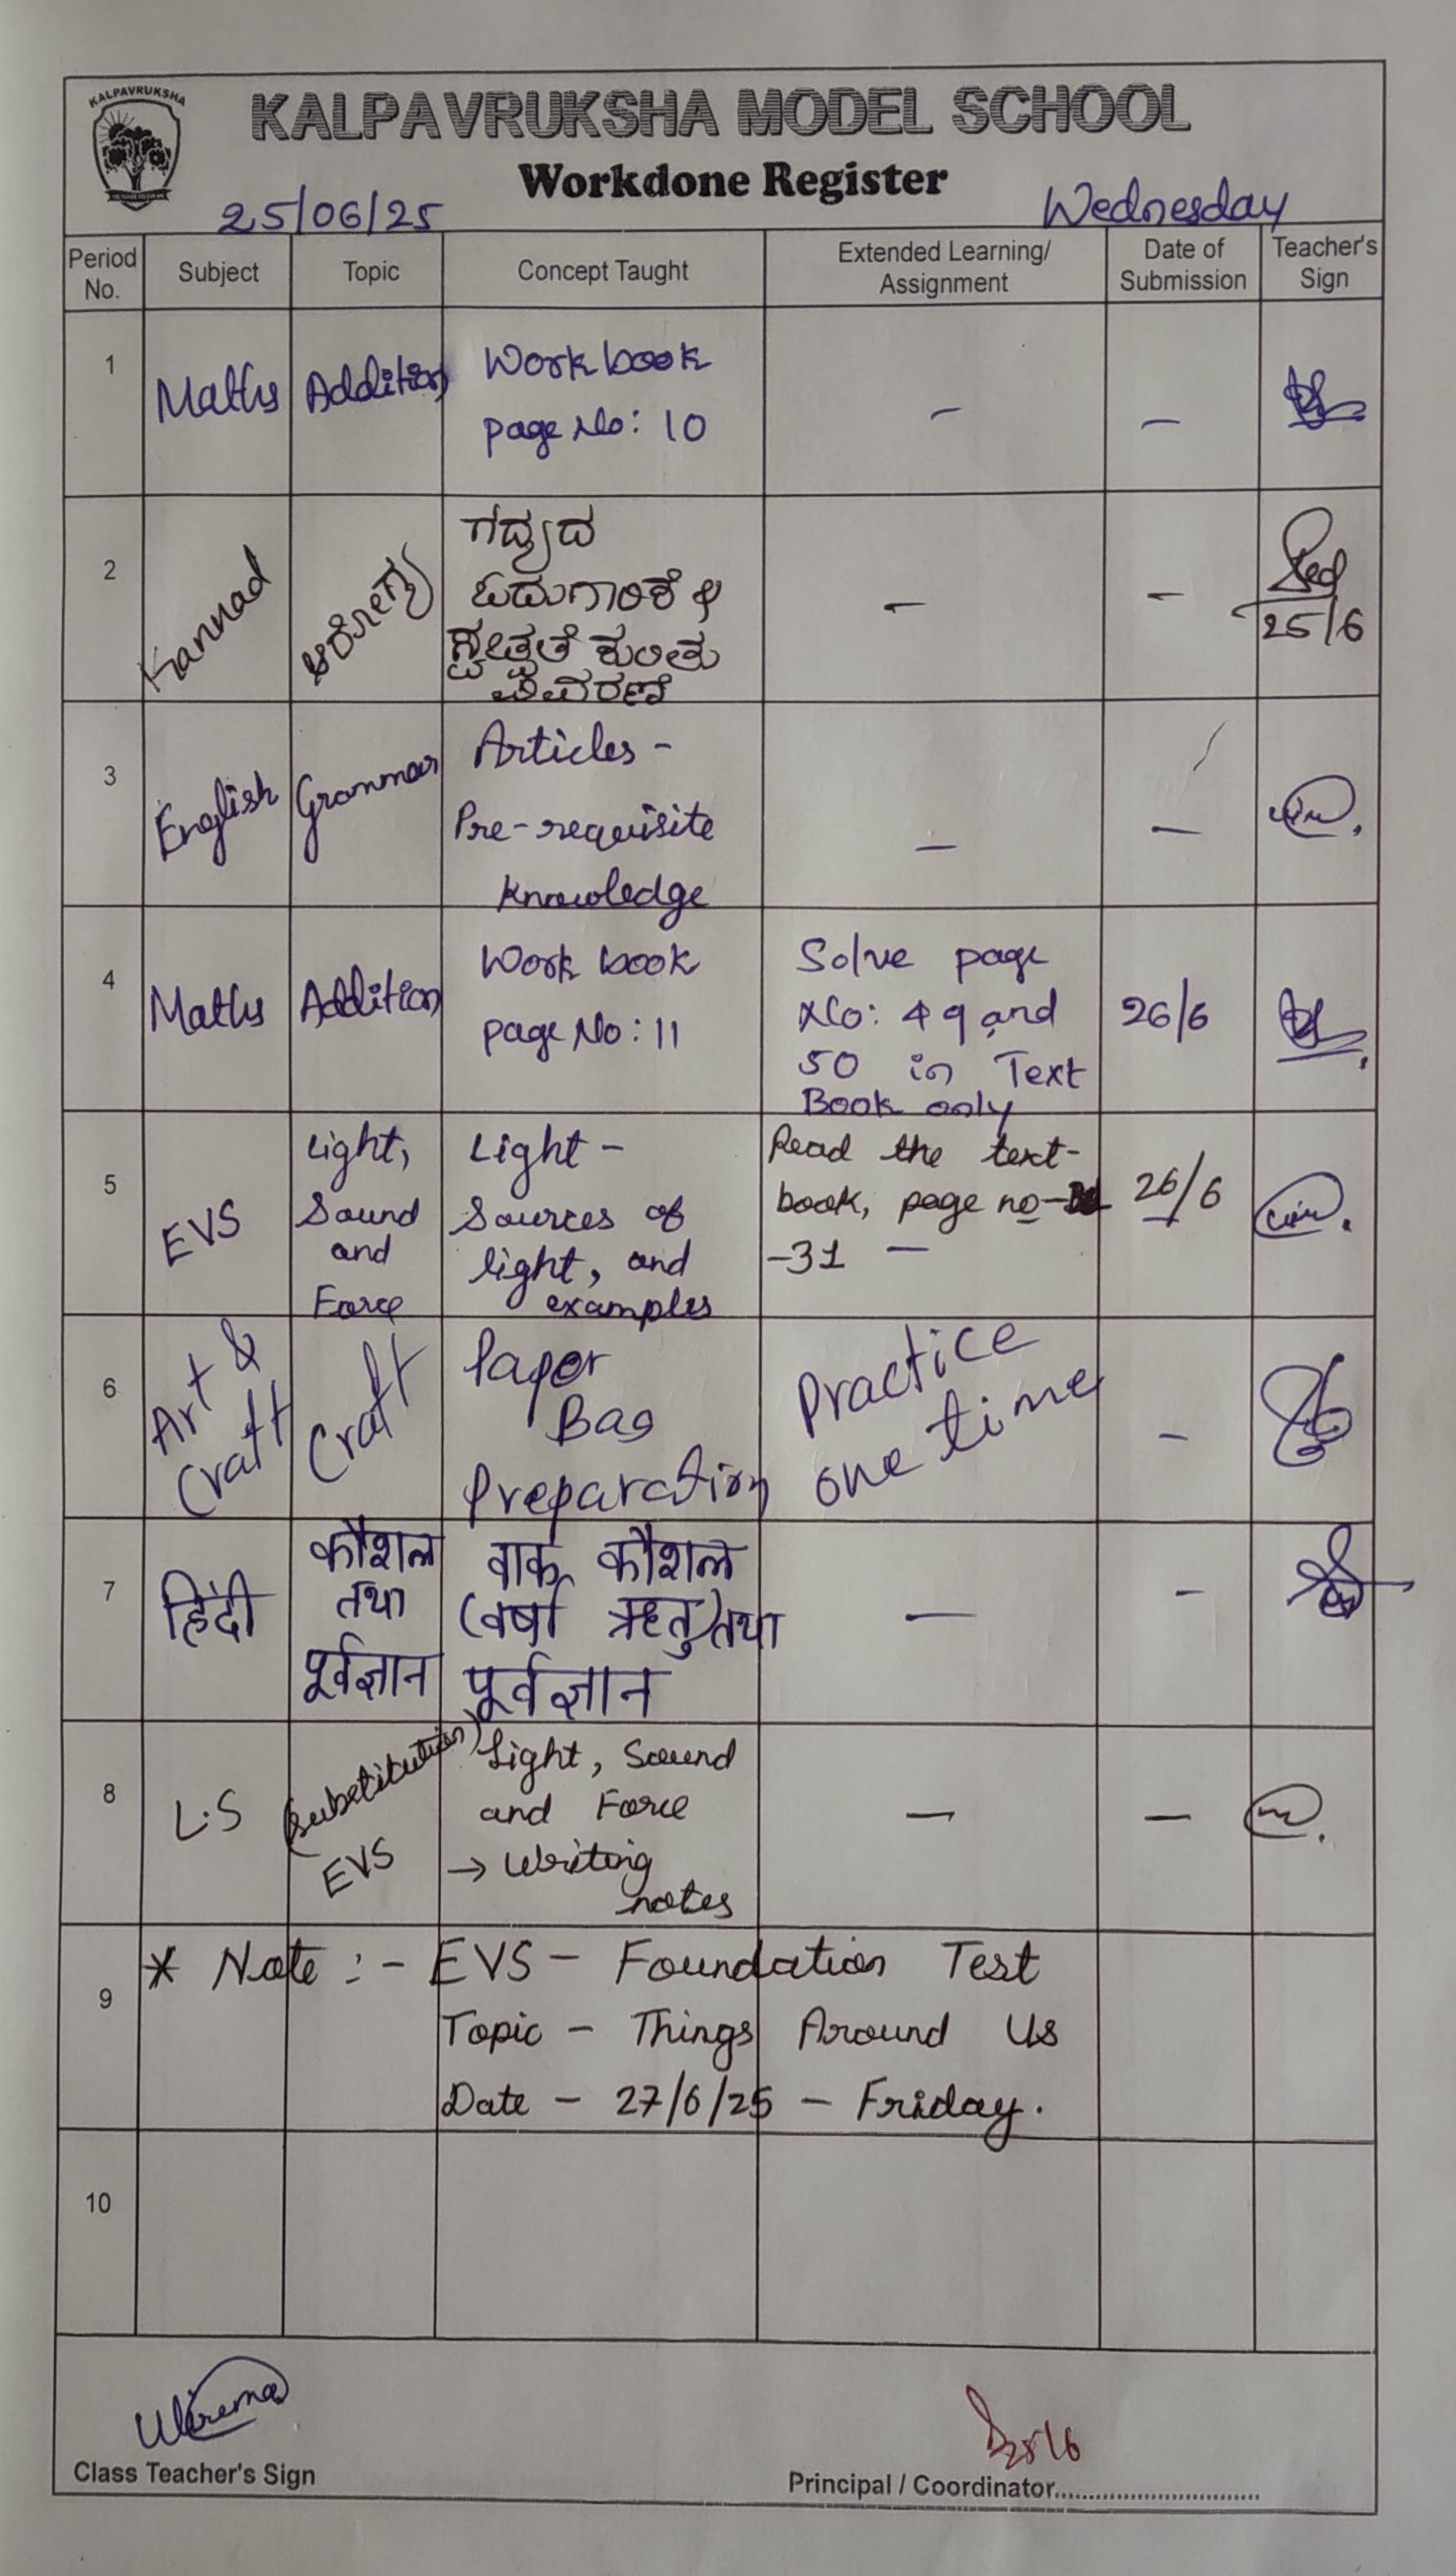 KALPAVRUKSHA
KALPAVRUKSHA MODEL SCHOOL
Workdone Register
25/06/25 Wednesday
Period No. Subject Topic Concept Taught Extended Learning/ Assignment Date of Submission Teacher's Sign
1 Maths Addition Work book
page No: 10 – –
2 Kannad ಆರೋಗ್ಯ ಗದ್ಯದ
ಓದುಗಾರಿಕೆ &
ಕುರಿತು
ವಿವರಣೆ – –
25/6
3 English Grammar Articles –
Pre-requisite
knowledge – –
4 Maths Addition Work book
page No: 11
Solve page
No: 49 and
50 in Text
Book only
26/6
5 EVS
Light,
Sound
and
Force
Light –
Sources of
light, and
examples
Read the text-
book, page no–
–31 –
26/6
6 Art &
Craft
Craft
Paper
Bag
Preparation
Practice
one time
–
7 हिंदी
कौशल
तथा
पूर्वज्ञान
वाक् कौशल
(वर्षा ऋतु) तथा
पूर्वज्ञान
– –
8 L.S
(substitution)
EVS
Light, Sound
and Force
→ Writing
notes
– –
9 * Note :- EVS – Foundation Test
Topic – Things Around Us
Date – 27/6/25 – Friday.
10
25/6
Class Teacher's Sign
Principal / Coordinator..............................